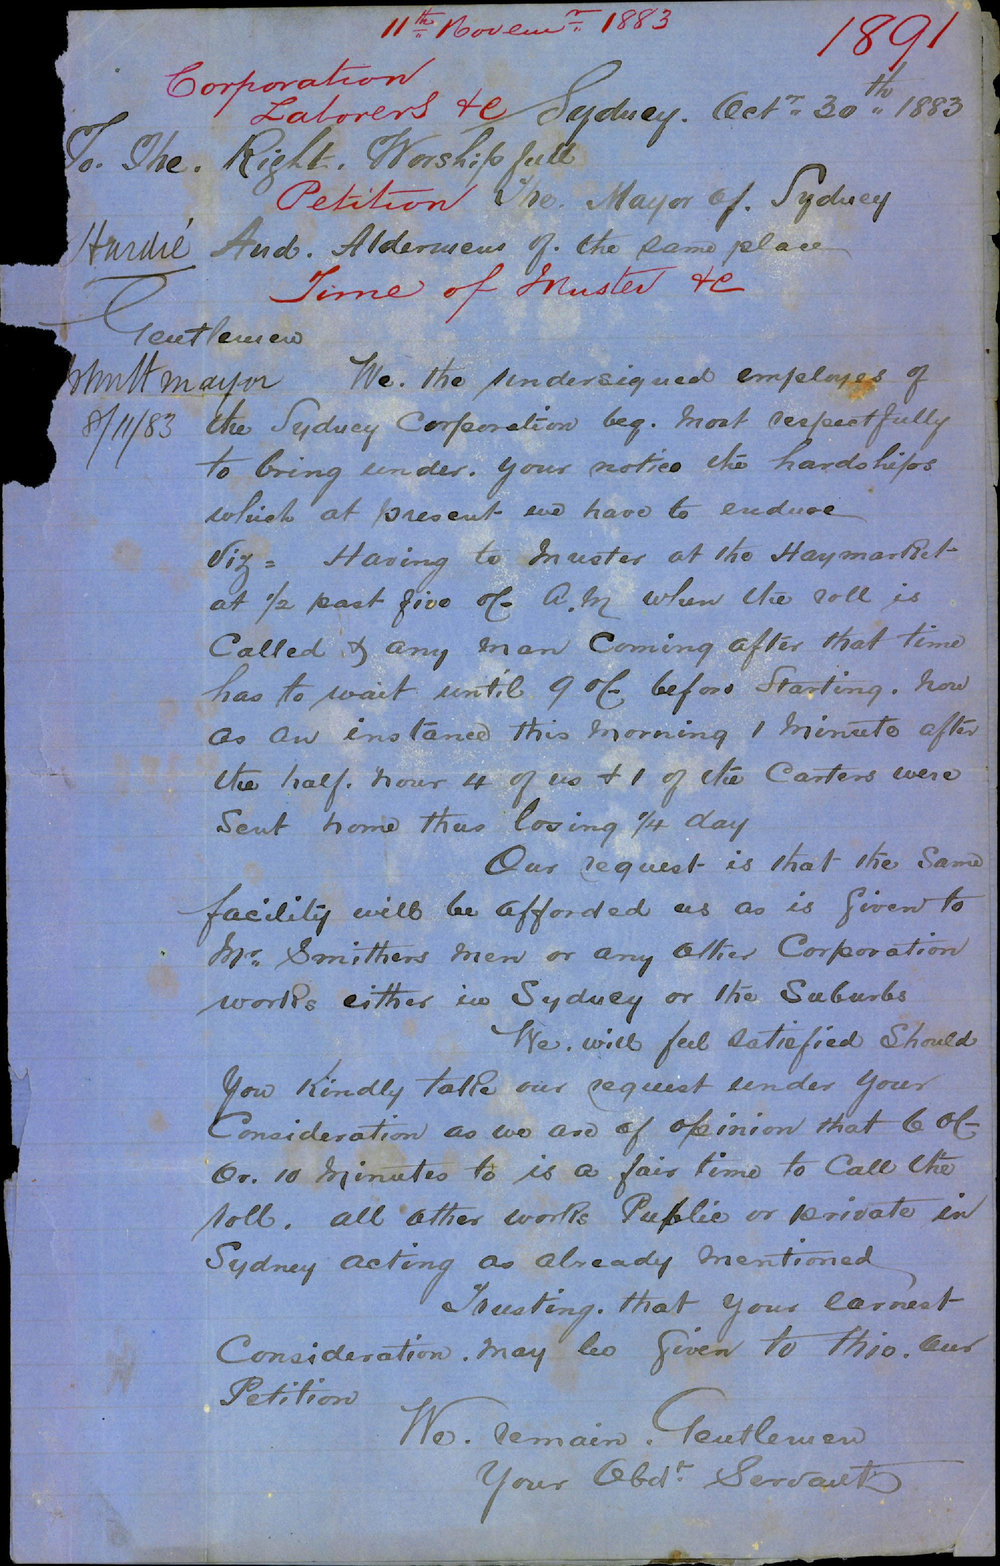 11th Novemr 1883
1891
Corporation
Laborers &c
Sydney. Octr 30th 1883
To. The. Right. Worshipfull
Petition
The. Mayor of. Sydney
Hardie
And. Aldermens of. the same place
Time of Muster &c
Gentlemen
mayor
8/11/83
We. the undersigned employes of
the Sydney Corporation beg. most respectfully
to bring under. your notice the hardships
which at present we have to endure
Viz = Having to Muster at the Haymarket
at 1/2 past five oC A.M when the roll is
Called & any man Coming after that time
has to wait until 9 oC before Starting. Now
as an instance this Morning 1 Minute after
the half. hour 4 of us & 1 of the Carters were
Sent home thus losing 1/4 day
Our request is that the Same
facility will be afforded us as is Given to
Mr. Smithers Men or any other Corporation
works either in Sydney or the Suburbs
We. will feel satisfied Should
You Kindly take our request under Your
Consideration as we are of opinion that 6 oC
Or. 10 Minutes to is a fair time to Call the
roll. all other works Public or private in
Sydney acting as already mentioned
Trusting. that your earnest
Consideration. may be Given to this. our
Petition
We. remain. Gentlemen
Your Obdt Servants